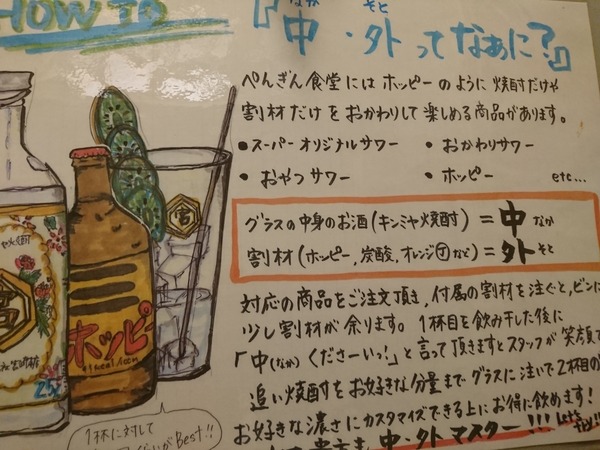 HOW TO
『中・外ってなぁに?』
なか そと
ぺんぎん食堂にはホッピーのように焼酎だけや
割材だけをおかわりして楽しめる商品があります。
・スーパーオリジナルサワー ・おかわりサワー
・おやつサワー ・ホッピー etc...
グラスの中身のお酒(キンミヤ焼酎)=中 なか
割材(ホッピー,炭酸,オレンジⓙなど)=外 そと
対応の商品をご注文頂き,付属の割材を注ぐと,ビンに
少し割材が余ります。1杯目を飲み干した後に
「中(なか)くださーいっ!」と言って頂きますとスタッフが笑顔で
追い焼酎をお好きな分量までグラスに注いで2杯目の
お好きな濃さにカスタマイズできる上にお得に飲めます!
中・外マスター!!! Let's
try!!
や焼酎
宮
25
ホッピー
宮
1杯に対して
がBest!!